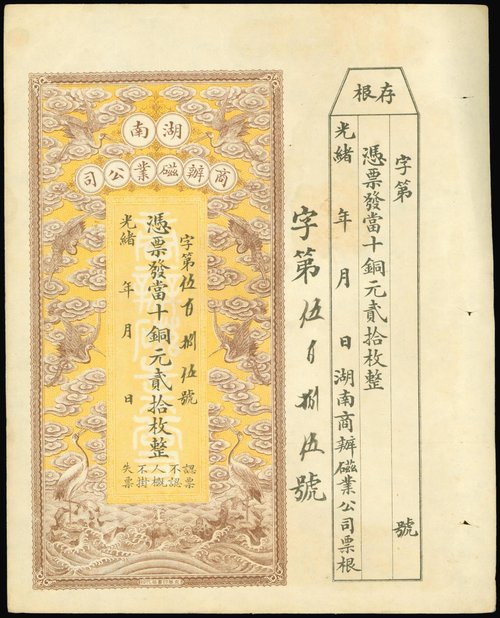 湖南
商辦磁業公司
字第伍百捌伍號
憑票發當十銅元貳拾枚整
光緒 年 月 日
認票不認人概不掛失票
字第伍百捌伍號
存根
字第 號
憑票發當十銅元貳拾枚整
光緒 年 月 日湖南商辦磁業公司票根